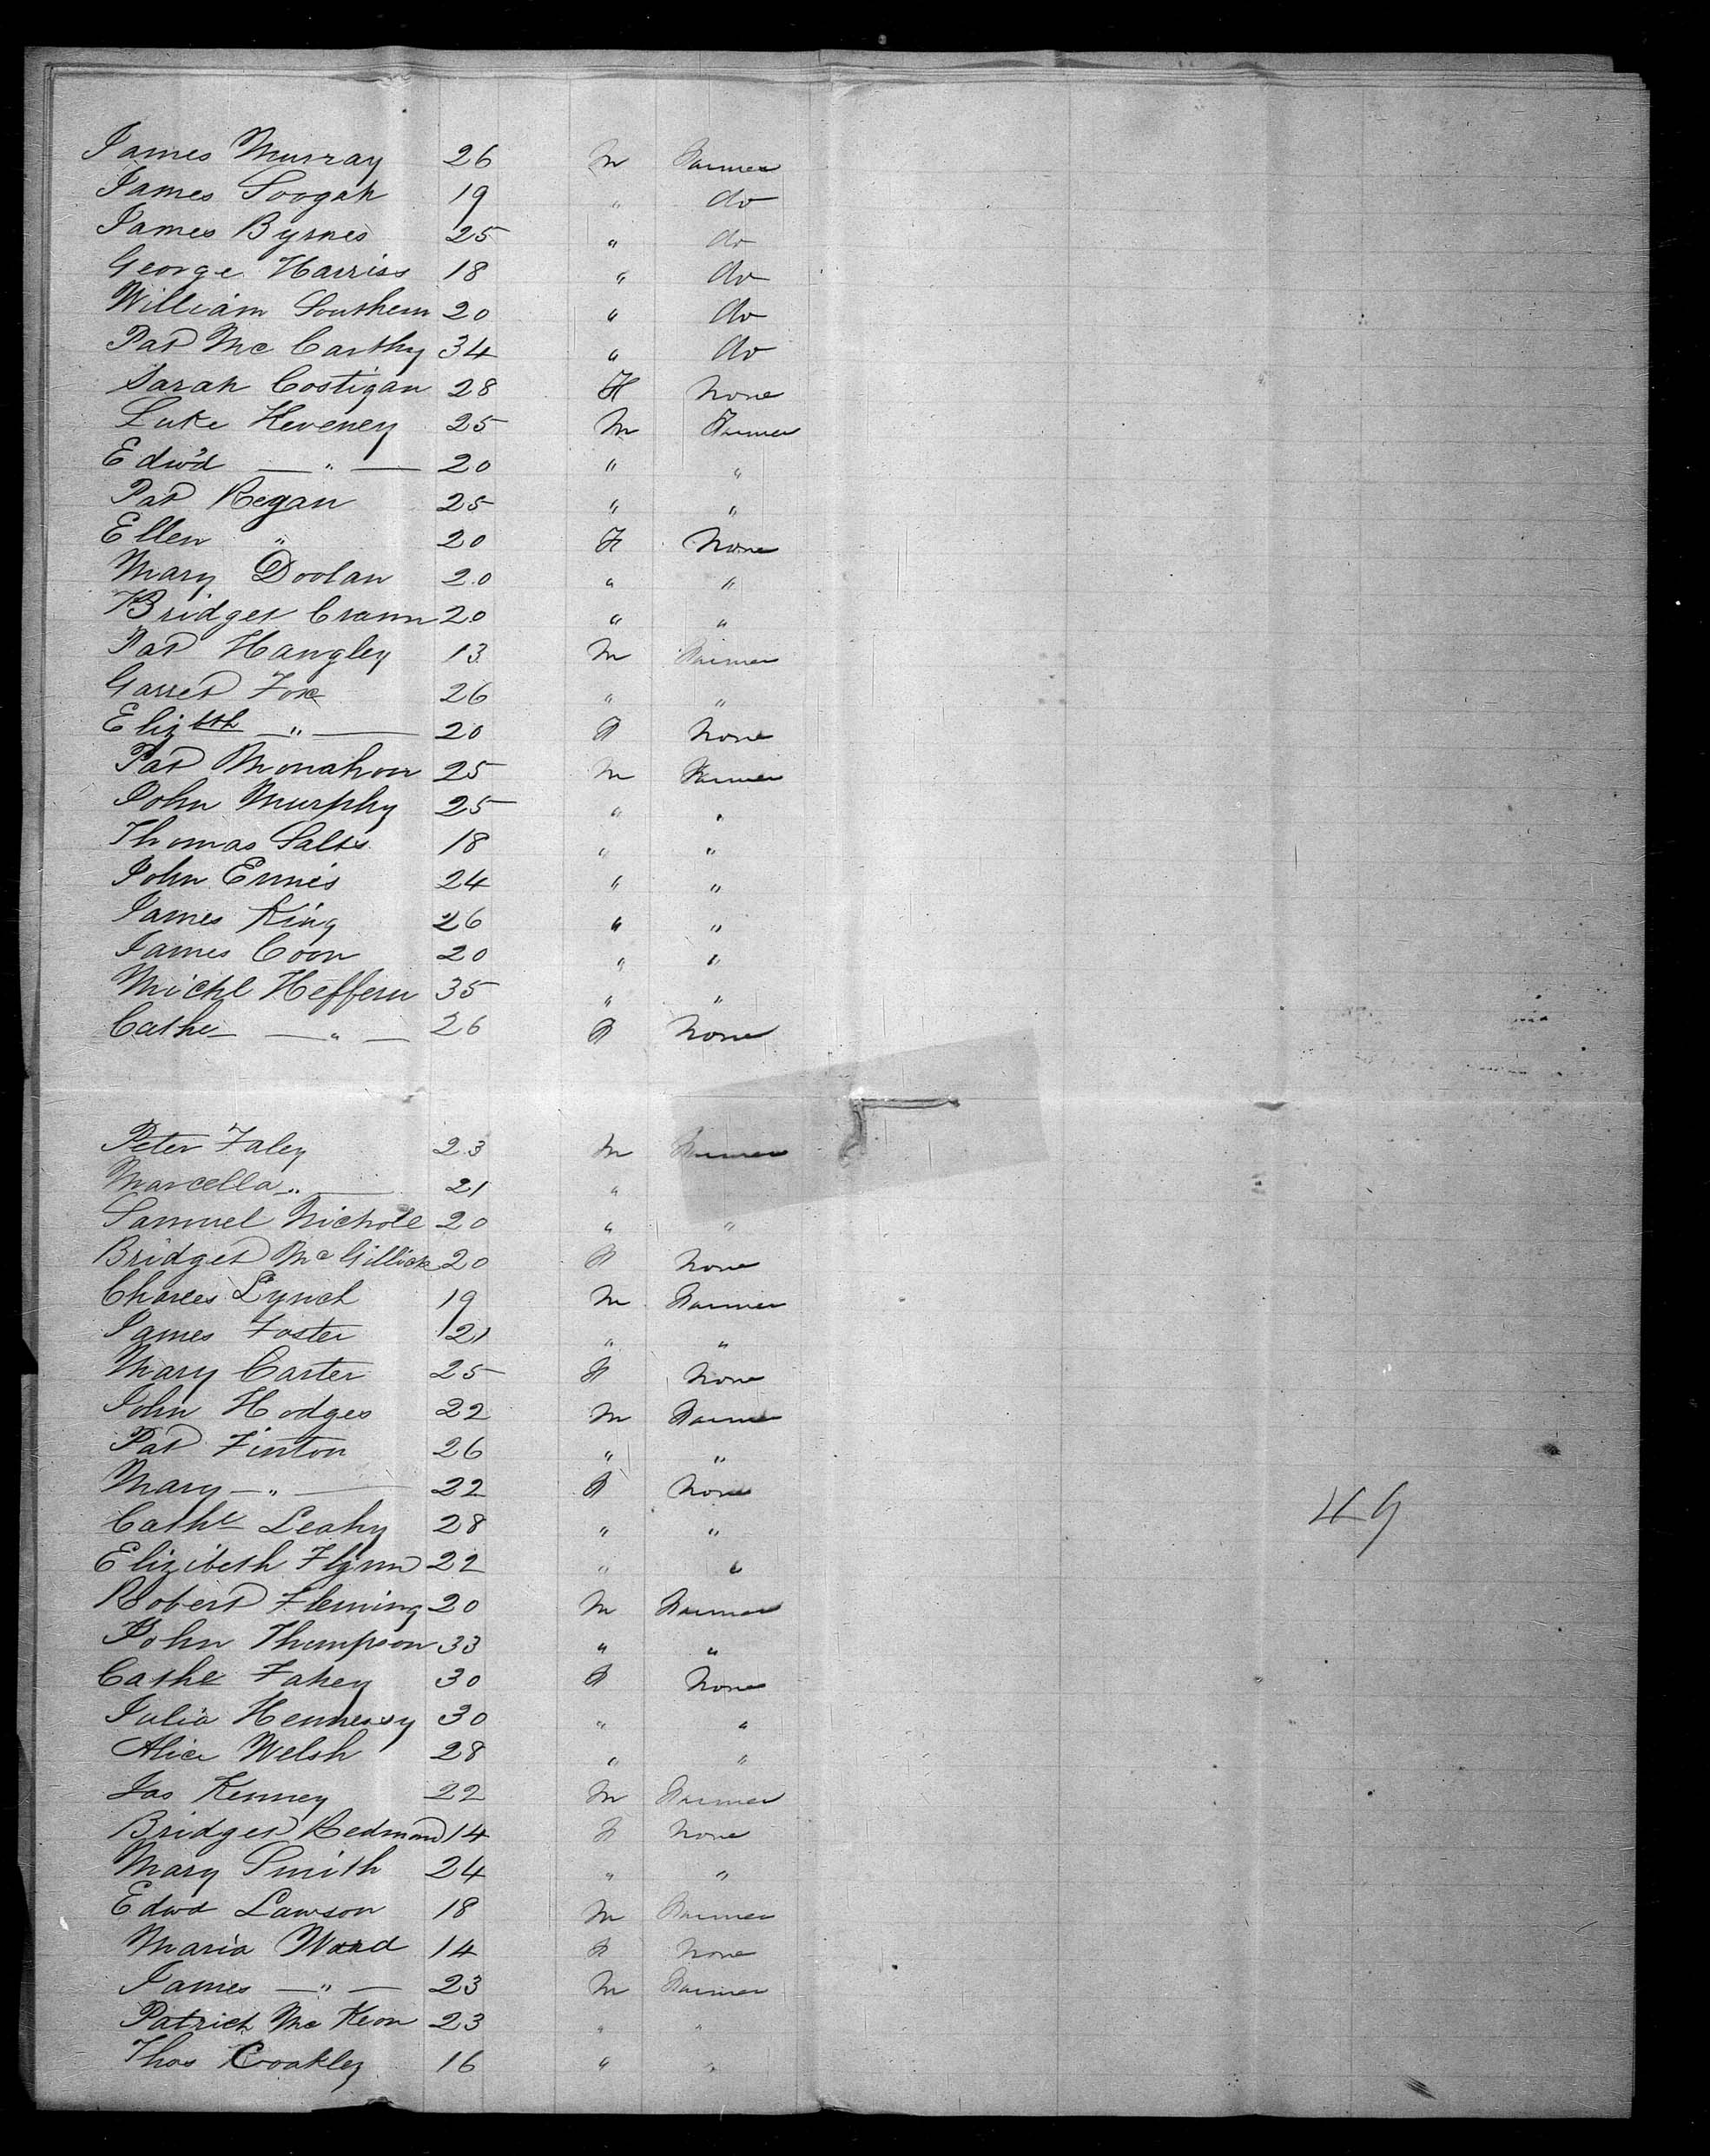 James Murray 26 M Farmer
James Soogah 19 " do
James Byrnes 25 " do
George Harriss 18 " do
William Southern 20 " do
Pat Mc Carthy 34 " do
Sarah Costigan 28 F None
Luke Heveney 25 M Farmer
Edwd — " — 20 " "
Pat Regan 25 " "
Ellen " 20 F None
Mary Doolan 20 " "
Bridget Crann 20 " "
Pat Hangley 13 M Farmer
Garret Fox 26 " "
Elizbth — " — 20 F None
Pat Monahon 25 M Farmer
John Murphy 25 " "
Thomas Salts 18 " "
John Ennis 24 " "
James King 26 " "
James Coon 20 " "
Michl Heffern 35 " "
Cathe — " — 26 F None
Peter Faley 23 M Farmer
Marcella " — 21 "
Samuel Nicholl 20 " "
Bridget McGillick 20 F None
Charles Lynch 19 M Farmer
James Foster 21 " "
Mary Carter 25 F None
John Hodges 22 M Farmer
Pat Finton 26 " "
Mary — " — 22 F None
Cathe Leahy 28 " "
Elizibeth Flynn 22 " "
Robert Fleming 20 M Farmer
John Thumpson 33 " "
Cathe Fahey 30 F None
Julia Hennessy 30 " "
Alice Welsh 28 " "
Jas Kenney 22 M Farmer
Bridget Redmond 14 F None
Mary Smith 24 " "
Edwd Lawson 18 M Farmer
Maria Ward 14 F None
James — " — 23 M Farmer
Patrick Mc Keon 23 " "
Thos Coakley 16 " "
49